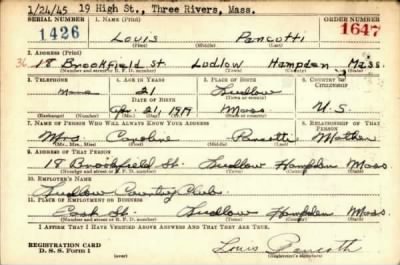 1/24/45 19 High St., Three Rivers, Mass.
SERIAL NUMBER 1. NAME (Print) ORDER NUMBER
1426 Louis Pancotti 1647
(First) (Middle) (Last)
2. ADDRESS (Print)
18 Brookfield St Ludlow Hampden Mass.
(Number and street or R. F. D. number) (Town) (County) (State)
3. TELEPHONE 4. AGE IN YEARS 5. PLACE OF BIRTH 6. COUNTRY OF CITIZENSHIP
None 21 Ludlow
DATE OF BIRTH (Town or county)
Apr. 21, 1919 Mass. U.S.
(Exchange) (Number) (Mo.) (Day) (Yr.) (State or country)
7. NAME OF PERSON WHO WILL ALWAYS KNOW YOUR ADDRESS 8. RELATIONSHIP OF THAT PERSON
Mrs. Caroline Pancotti Mother
(Mr., Mrs., Miss) (First) (Middle) (Last)
9. ADDRESS OF THAT PERSON
18 Brookfield St. Ludlow Hampden Mass
(Number and street or R. F. D. number) (Town) (County) (State)
10. EMPLOYER'S NAME
Ludlow Country Club
11. PLACE OF EMPLOYMENT OR BUSINESS
St. Ludlow Hampden Mass.
(Number and street or R. F. D. number) (Town) (County) (State)
I AFFIRM THAT I HAVE VERIFIED ABOVE ANSWERS AND THAT THEY ARE TRUE.
REGISTRATION CARD
D. S. S. Form 1 Louis Pancotti
(Registrant's signature)